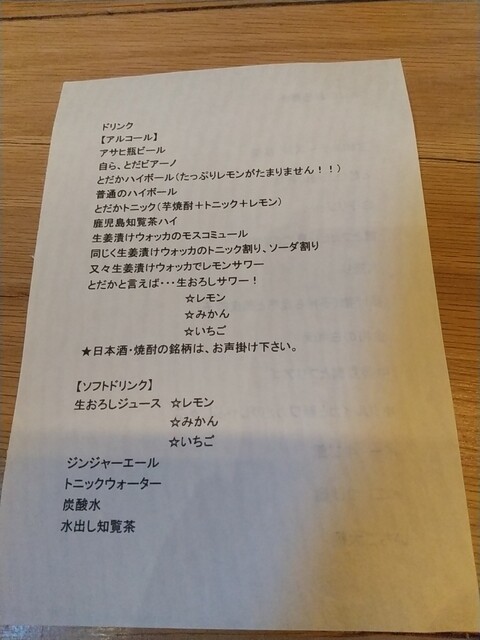 ドリンク
【アルコール】
アサヒ瓶ビール
自ら、とだビアーノ
とだかハイボール(たっぷりレモンがたまりません!!)
普通のハイボール
とだかトニック(芋焼酎+トニック+レモン)
鹿児島知覧茶ハイ
生姜漬けウォッカのモスコミュール
同じく生姜漬けウォッカのトニック割り、ソーダ割り
又々生姜漬けウォッカでレモンサワー
とだかと言えば・・・生おろしサワー!
☆レモン
☆みかん
☆いちご
★日本酒・焼酎の銘柄は、お声掛け下さい。
【ソフトドリンク】
生おろしジュース ☆レモン
☆みかん
☆いちご
ジンジャーエール
トニックウォーター
炭酸水
水出し知覧茶